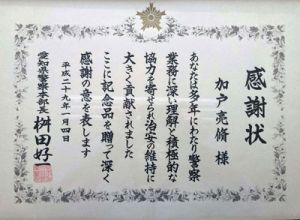 感謝状
加戸亮脩 様
あなたは多年にわたり警察
業務に深い理解と積極的な
協力を寄せられ治安の維持に
大きく貢献されました
ここに記念品を贈って深く
感謝の意を表します
平成二十九年一月四日
愛知県警察本部長 桝田好一